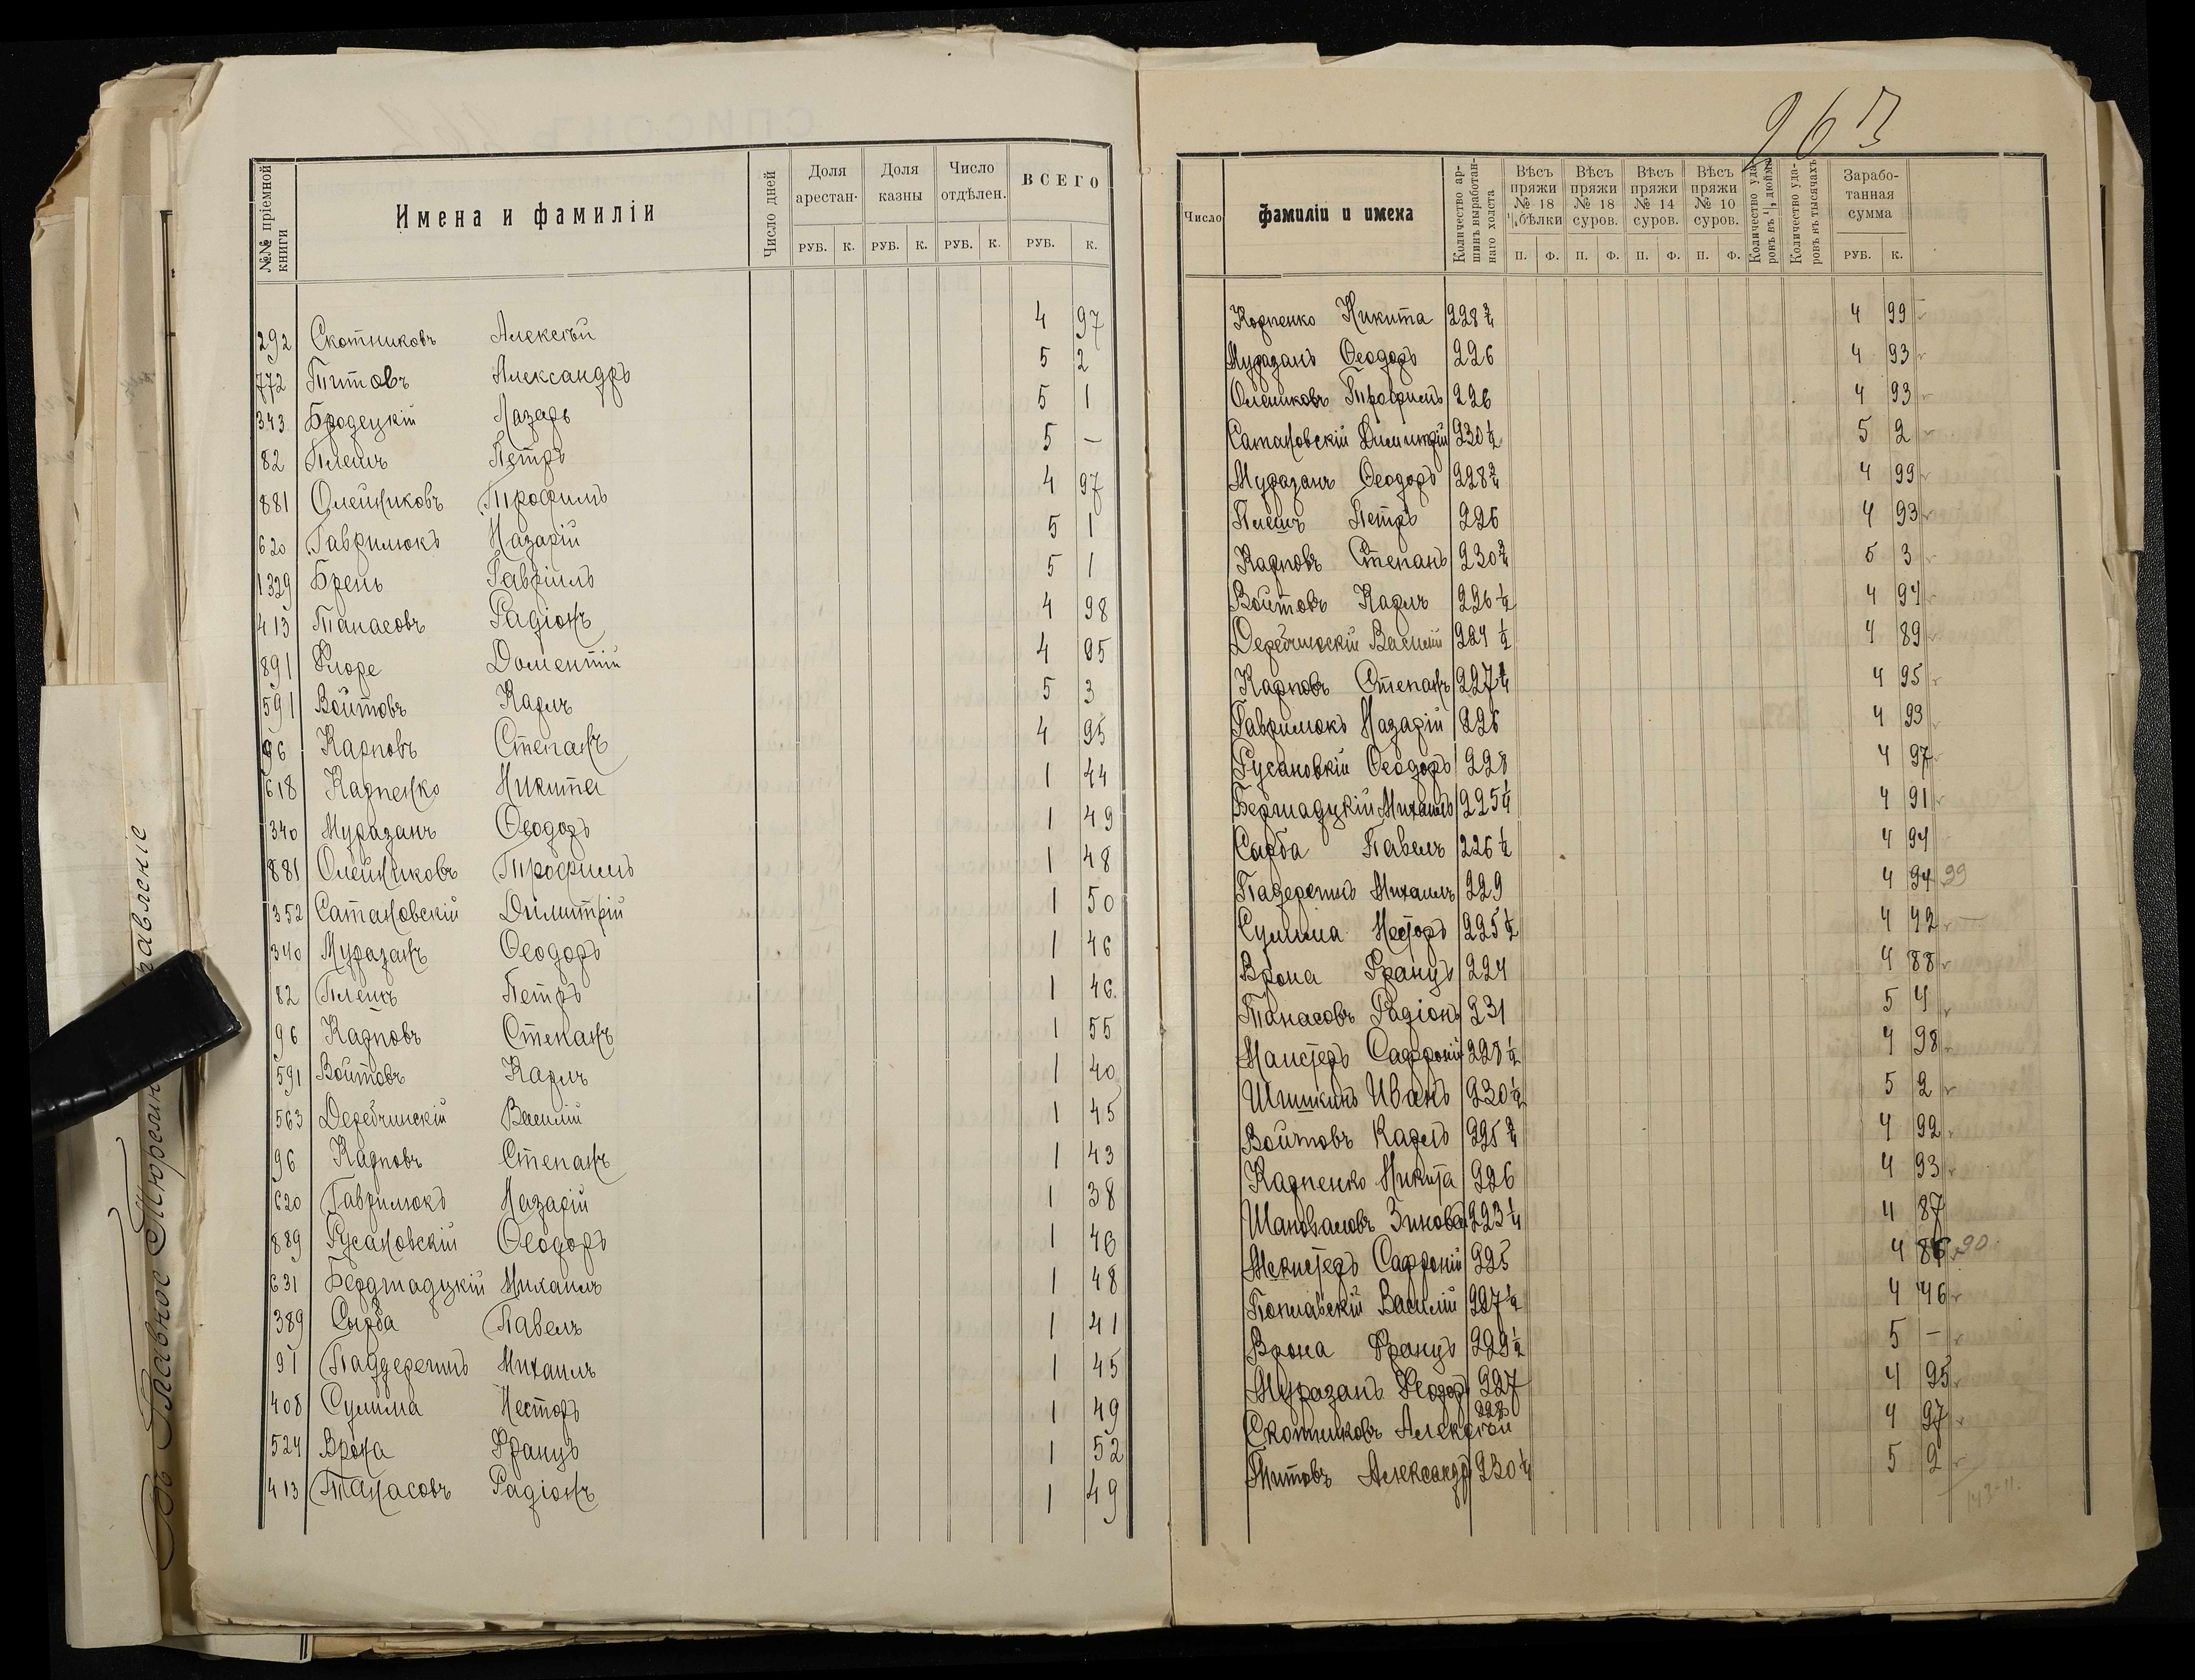 №№ пріемной книги
Имена и фамиліи
Число дней
Доля арестан. руб. к.
Доля казны руб. к.
Число отдѣлен. руб. к.
ВСЕГО руб. к.
292 Скотниковъ Алексѣй 4 97
772 Титовъ Александръ 5 2
343 Бродецкій Лазарь 5 1
82 Плешъ Петръ 5 –
881 Олейниковъ Трофимъ 4 97
620 Гаврилюкъ Назарій 5 1
1329 Брень Гавріилъ 5 1
413 Танасовъ Радіонъ 4 98
891 Флоре Доментій 4 95
591 Войтовъ Карлъ 5 3
96 Карповъ Степанъ 4 95
618 Карпенко Никита 1 44
340 Муразанъ Ѳеодоръ 1 49
881 Олейниковъ Трофимъ 1 48
352 Сатановскій Димитрій 1 50
340 Муразанъ Ѳеодоръ 1 46
82 Плешъ Петръ 1 46
96 Карповъ Степанъ 1 55
591 Войтовъ Карлъ 1 40
563 Деребчинскій Василій 1 45
96 Карповъ Степанъ 1 43
620 Гаврилюкъ Назарій 1 38
889 Русановскій Ѳеодоръ 1 46
631 Бердмадцкій Михаилъ 1 48
389 Сырба Павелъ 1 41
91 Паддерегинъ Михаилъ 1 45
408 Сулима Несторъ 1 49
524 Врона Францъ 1 52
413 Танасовъ Радіонъ 1 49
Въ Главное Тюремн равленіе
263
Число
Фамиліи и имена
Количество аршинъ выработаннаго холста
Вѣсъ пряжи № 18 ½ бѣлки п. ф.
Вѣсъ пряжи № 18 суров. п. ф.
Вѣсъ пряжи № 14 суров. п. ф.
Вѣсъ пряжи № 10 суров. п. ф.
Количество ударовъ въ ¼ дюйма
Количество ударовъ въ тысячахъ
Заработанная сумма руб. к.
Карпенко Никита 228¾ 4 99
Муразанъ Ѳеодоръ 226 4 93
Олейниковъ Трофимъ 226 4 93
Сатановскій Димитрій 230½ 5 2
Муразанъ Ѳеодоръ 228¾ 4 99
Плешъ Петръ 226 4 93
Карповъ Степанъ 230¾ 5 3
Войтовъ Карлъ 226½ 4 94
Деребчинскій Василій 224½ 4 89
Карповъ Степанъ 227¼ 4 95
Гаврилюкъ Назарій 226 4 93
Русановкій Ѳеодоръ 228 4 97
Бермадцкій Михаилъ 225¼ 4 91
Сырба Павелъ 226½ 4 94
Падерегинъ Михаилъ 229 4 94 99
Сулима Несторъ 225½ 4 92
Врона Францъ 224 4 88
Танасовъ Радіонъ 231 5 4
Сафроній 228½ 4 98
Шишкинъ Иванъ 230½ 5 2
Войтовъ Карлъ 225¾ 4 92
Карпенко Никита 226 4 93
Шаповаловъ 223¼ 4 87
Сафроній 225 4 86 90
Поплавскій Василій 227½ 4 96
Врона Францъ 229½ 5 –
Муразанъ Ѳеодоръ 227 4 95
Скотниковъ Алексѣй 228 4 97
Титовъ Александръ 230¼ 5 2
143-11.